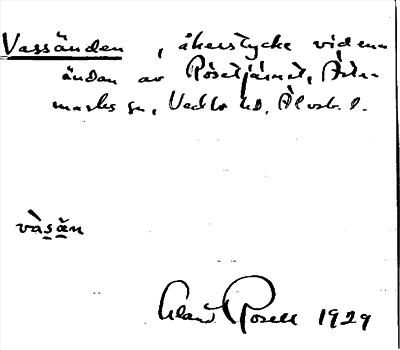 Vassänden , åkerstycke vid ena
ändan av Rösetjärnet, Årtemarks sn, Vedbo hd, Älvsb. l.
vàsǟn
Claes Rosell 1929